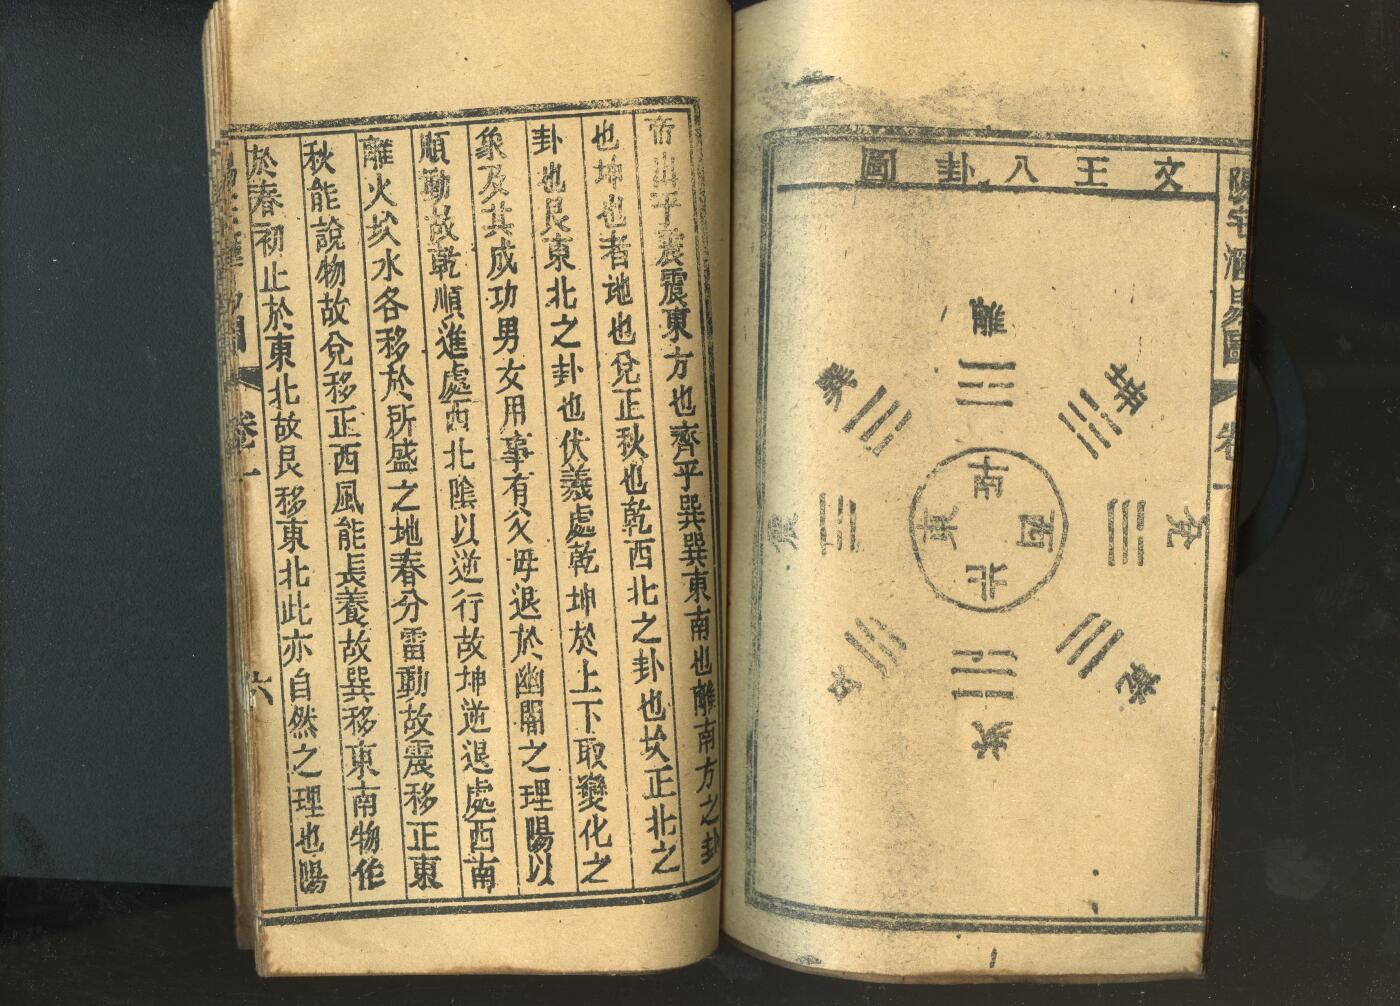 卷一
文王八卦圖
離
巽
坤
南
震
東
西
兌
北
艮
乾
坎
帝出乎震震東方也齊乎巽巽東南也離南方之卦
也坤也者地也兌正秋也乾西北之卦也坎正北之
卦也艮東北之卦也伏羲處乾坤於上下取變化之
象及其成功男女用事有父母退於幽閒之理陽以
順動故乾順進處西北陰以逆行故坤逆退處西南
離火坎水各移於所盛之地春分雷動故震移正東
秋能說物故兌移正西風能長養故巽移東南物作
於春初止於東北故艮移東北此亦自然之理也陽
卷一
六